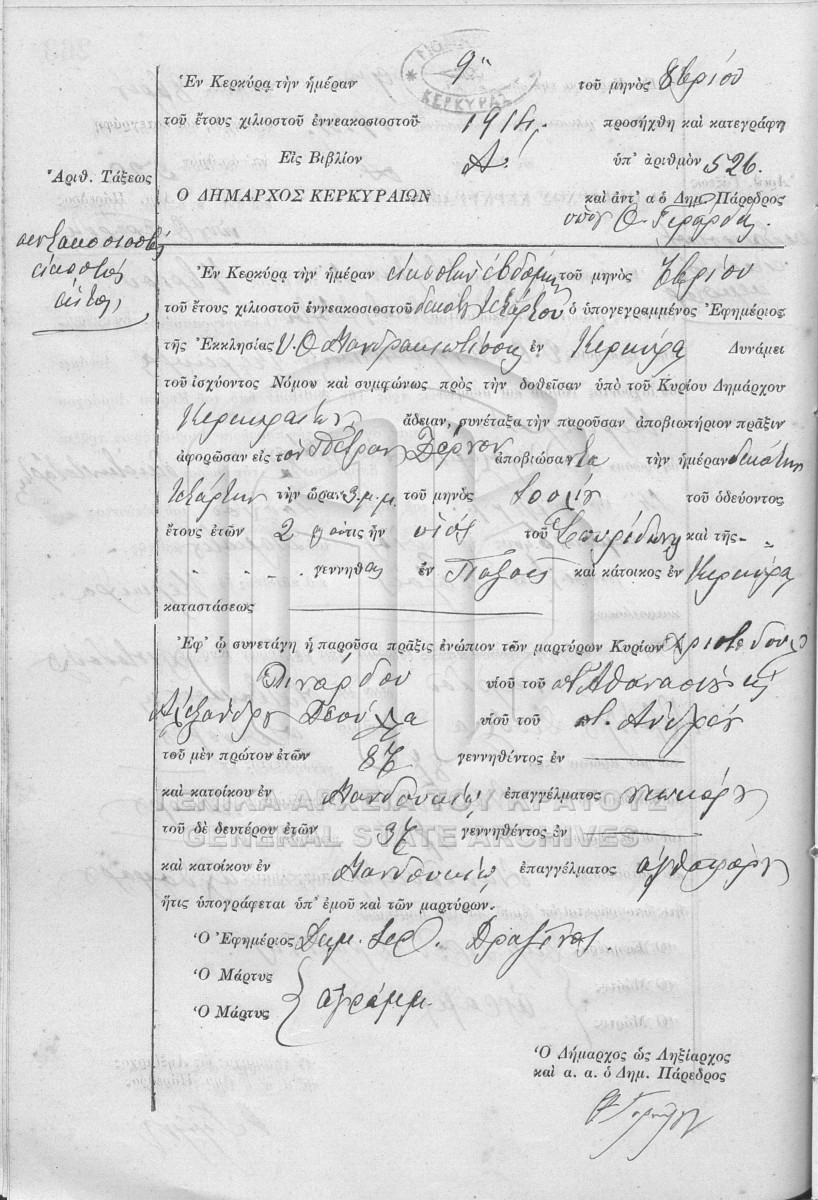 Ἐν Κερκύρᾳ τὴν ἡμέραν 9ην τοῦ μηνὸς 8βρίου
τοῦ ἔτους χιλιοστοῦ ἐννεακοσιοστοῦ 1914 προσήχθη καὶ κατεγράφη
Εἰς Βιβλίον Α΄. ὑπ' ἀριθμὸν 526.
Ἀριθ. Τάξεως
Ὁ ΔΗΜΑΡΧΟΣ ΚΕΡΚΥΡΑΙΩΝ καὶ ἀντ' α ὁ Δημ. Πάρεδρος
ΚΕΡΚΥΡΑΣ
πεντακοσιοστὸς
εἰκοστὸς
ἕκτος
Ἐν Κερκύρᾳ τὴν ἡμέραν εἰκοστὴν ἑβδόμην τοῦ μηνὸς
τοῦ ἔτους χιλιοστοῦ ἐννεακοσιοστοῦ δεκάτου τετάρτου ὁ ὑπογεγραμμένος Ἐφημέριος
τῆς Ἐκκλησίας Υ. Θ. Μανδρακιωτίσσης ἐν Κερκύρᾳ Δυνάμει
τοῦ ἰσχύοντος Νόμου καὶ συμφώνως πρὸς τὴν δοθεῖσαν ὑπὸ τοῦ Κυρίου Δημάρχου
Κερκυραίων ἄδειαν, συνέταξα τὴν παροῦσαν ἀποβιωτήριον πρᾶξιν
ἀφορῶσαν εἰς τὸν Πέτρον ἀποβιώσαντα τὴν ἡμέραν δεκάτην
τετάρτην τὴν ὥραν 3 μ.μ. τοῦ μηνὸς τοῦ ὁδεύοντος
ἔτους ἐτῶν 2 ὅστις ἦν υἱὸς τοῦ Σπυρίδωνος καὶ τῆς - "
" " " γεννηθεὶς ἐν Παξοῖς καὶ κάτοικος ἐν Κερκύρᾳ
καταστάσεως
Ἐφ' ᾧ συνετάγη ἡ παροῦσα πρᾶξις ἐνώπιον τῶν μαρτύρων Κυρίων Χριστοδούλου
υἱοῦ τοῦ π. Ἀθανασίου καὶ
Ἀλεξάνδρου υἱοῦ τοῦ π. Ἀνδρέου
τοῦ μὲν πρώτου ἐτῶν γεννηθέντος ἐν
καὶ κατοίκου ἐν Μανδουκίῳ ἐπαγγέλματος
τοῦ δὲ δευτέρου ἐτῶν γεννηθέντος ἐν
καὶ κατοίκου ἐν Μανδουκίῳ ἐπαγγέλματος ἀχθοφόρου
ΓΕΝΙΚΑ ΑΡΧΕΙΑ ΤΟΥ ΚΡΑΤΟΥΣ
GENERAL STATE ARCHIVES
ἥτις ὑπογράφεται ὑπ' ἐμοῦ καὶ τῶν μαρτύρων.
Ὁ Ἐφημέριος Δημ. Ἱερ.
Ὁ Μάρτυς
ἀγράμμ.
Ὁ Μάρτυς
Ὁ Δήμαρχος ὡς Ληξίαρχος
καὶ α. α. ὁ Δημ. Πάρεδρος